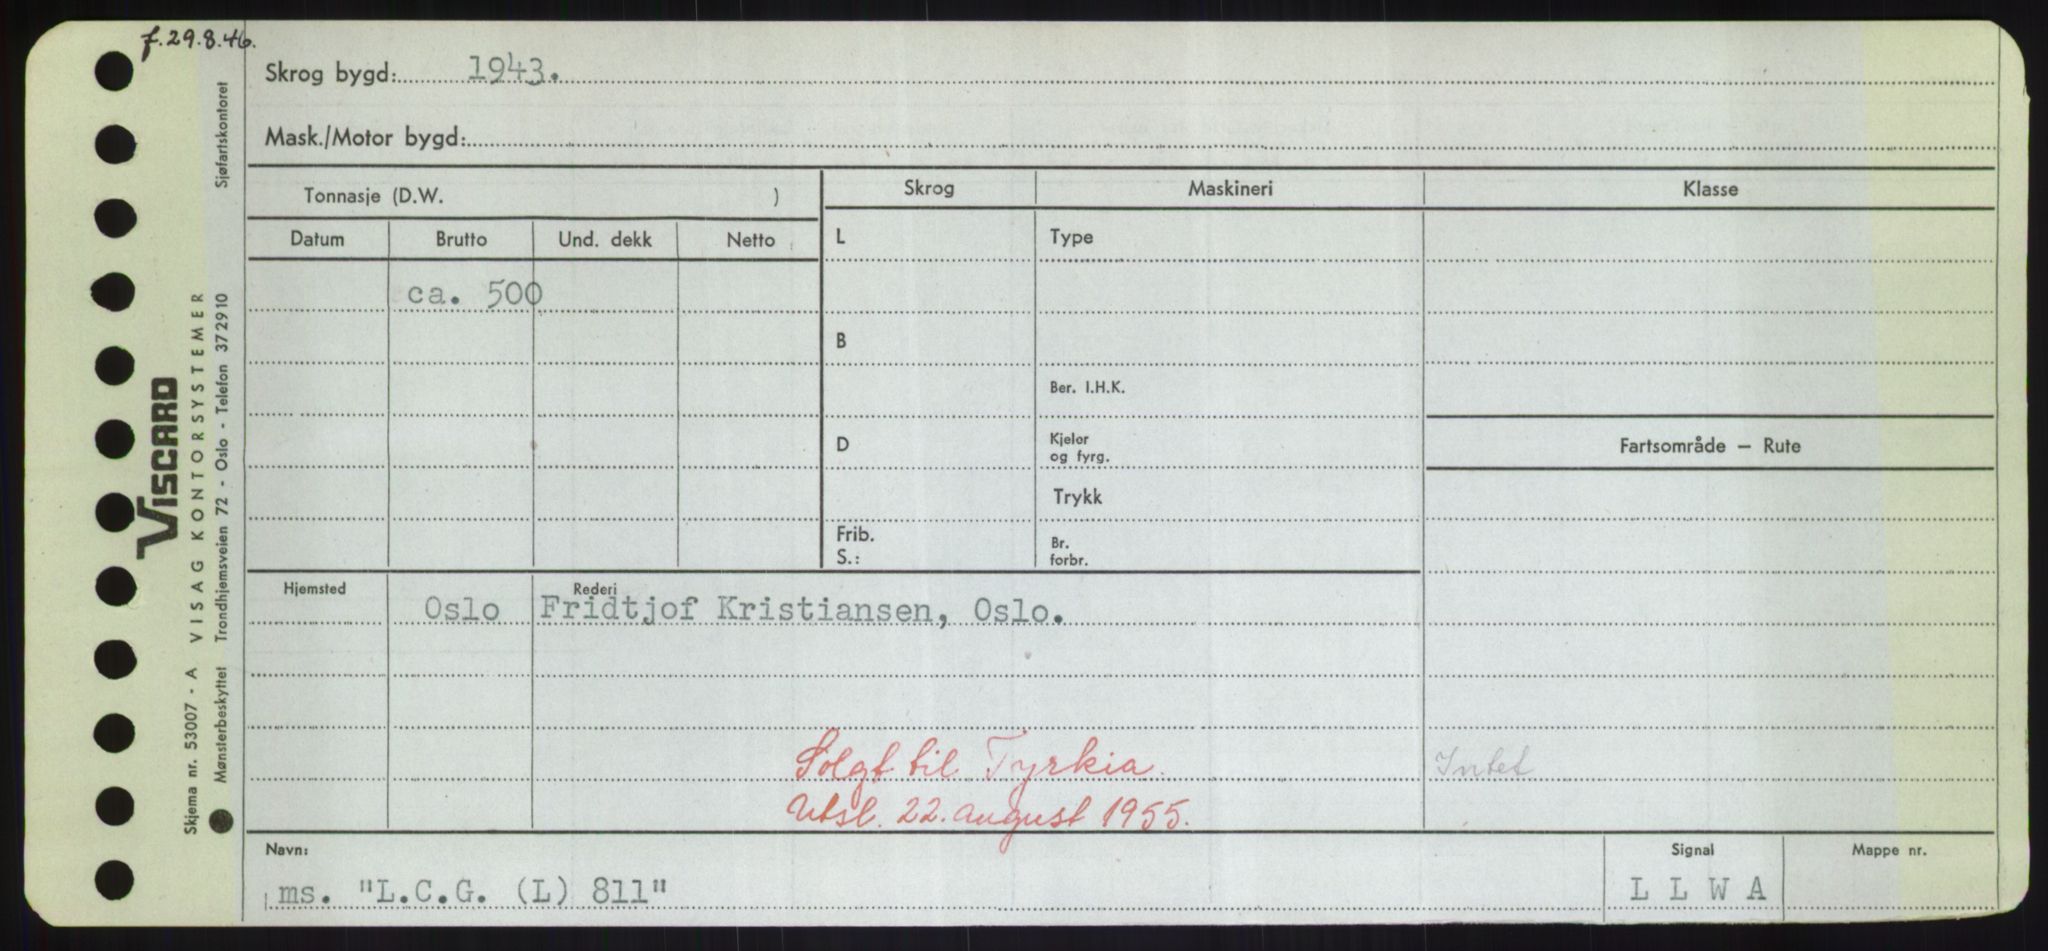 f.29.8.46.
Skrog bygd: 1943.
Mask./Motor bygd:
Tonnasje (D.W. )
Skrog Maskineri Klasse
Datum Brutto Und. dekk Netto
L Type
ca. 500
B
Ber. I.H.K.
D Kjeler og fyrg.
Fartsområde — Rute
Trykk
Frib. S.: Br. forbr.
Hjemsted Rederi
Oslo Fridtjof Kristiansen, Oslo.
Solgt til Tyrkia.
Intet
Utsl. 22. august 1955.
Navn: Signal Mappe nr.
ms. "L.C.G. (L) 811" L L W A
VISCARD
Skjema nr. 53007 - A VISAG KONTORSYSTEMER
Mønsterbeskyttet Trondhjemsveien 72 - Oslo - Telefon 372910 Sjøfartskontoret